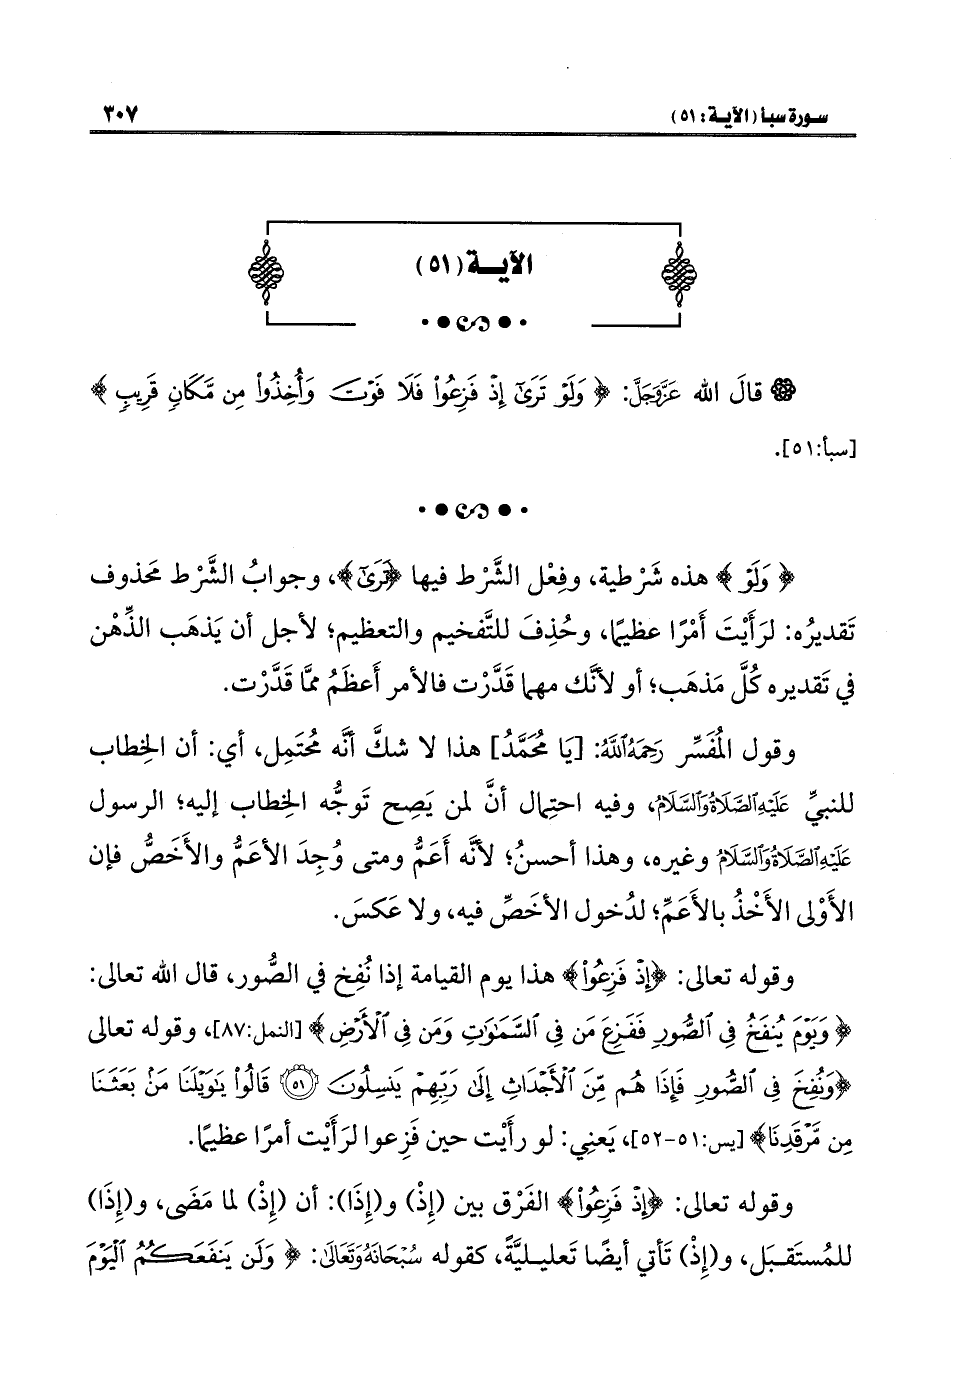 سورة سبأ (الآية: ٥١)
٣٠٧
الآية (٥١)
قالَ الله عَزَّوَجَلَّ: ﴿ وَلَوْ تَرَىٰٓ إِذْ فَزِعُوا۟ فَلَا فَوْتَ وَأُخِذُوا۟ مِن مَّكَانٍ قَرِيبٍ ﴾
[سبأ:٥١].
﴿ وَلَوْ ﴾ هذه شَرْطية، وفِعْل الشَّرْط فيها ﴿تَرَىٰٓ﴾، وجوابُ الشَّرْط مَحذوف
تَقديرُه: لرَأَيْتَ أَمْرًا عظيمًا، وحُذِفَ للتَّفخيم والتعظيم؛ لأجل أن يَذهَب الذِّهْن
في تَقديره كُلَّ مَذهَب؛ أو لأنَّك مهما قَدَّرْت فالأمر أَعظَمُ ممَّا قَدَّرْت.
وقول المُفَسِّر رَحِمَهُ ٱللَّهُ: [يَا مُحَمَّدُ] هذا لا شكَّ أنَّه مُحتمِل، أي: أن الخِطاب
للنبيِّ عَلَيْهِ ٱلصَّلَاةُ وَٱلسَّلَامُ، وفيه احتِمال أنَّ لمن يَصِح تَوجُّه الخِطاب إليه؛ الرسول
عَلَيْهِ ٱلصَّلَاةُ وَٱلسَّلَامُ وغيره، وهذا أحسنُ؛ لأنَّه أَعَمُّ ومتى وُجِدَ الأعَمُّ والأخَصُّ فإن
الأَوْلى الأَخْذُ بالأَعَمِّ؛ لدُخول الأخَصِّ فيه، ولا عَكسَ.
وقوله تعالى: ﴿إِذْ فَزِعُوا۟﴾ هذا يوم القيامة إذا نُفِخ في الصُّور، قال الله تعالى:
﴿ وَيَوْمَ يُنفَخُ فِى ٱلصُّورِ فَفَزِعَ مَن فِى ٱلسَّمَٰوَٰتِ وَمَن فِى ٱلْأَرْضِ ﴾ [النمل:٨٧]، وقوله تعالى
﴿وَنُفِخَ فِى ٱلصُّورِ فَإِذَا هُم مِّنَ ٱلْأَجْدَاثِ إِلَىٰ رَبِّهِمْ يَنسِلُونَ ۝٥١ قَالُوا۟ يَٰوَيْلَنَا مَنۢ بَعَثَنَا
مِن مَّرْقَدِنَا﴾ [يس:٥١-٥٢]، يَعنِي: لو رأَيْت حين فَزِعوا لرَأَيْت أمرًا عظيمًا.
وقوله تعالى: ﴿إِذْ فَزِعُوا۟﴾ الفَرْق بين (إِذْ) و(إِذَا): أن (إِذْ) لما مَضَى، و(إِذَا)
للمُستَقبَل، و(إِذْ) تَأتي أيضًا تَعليليَّةً، كقوله سُبْحَانَهُ وَتَعَالَىٰ: ﴿ وَلَن يَنفَعَكُمُ ٱلْيَوْمَ